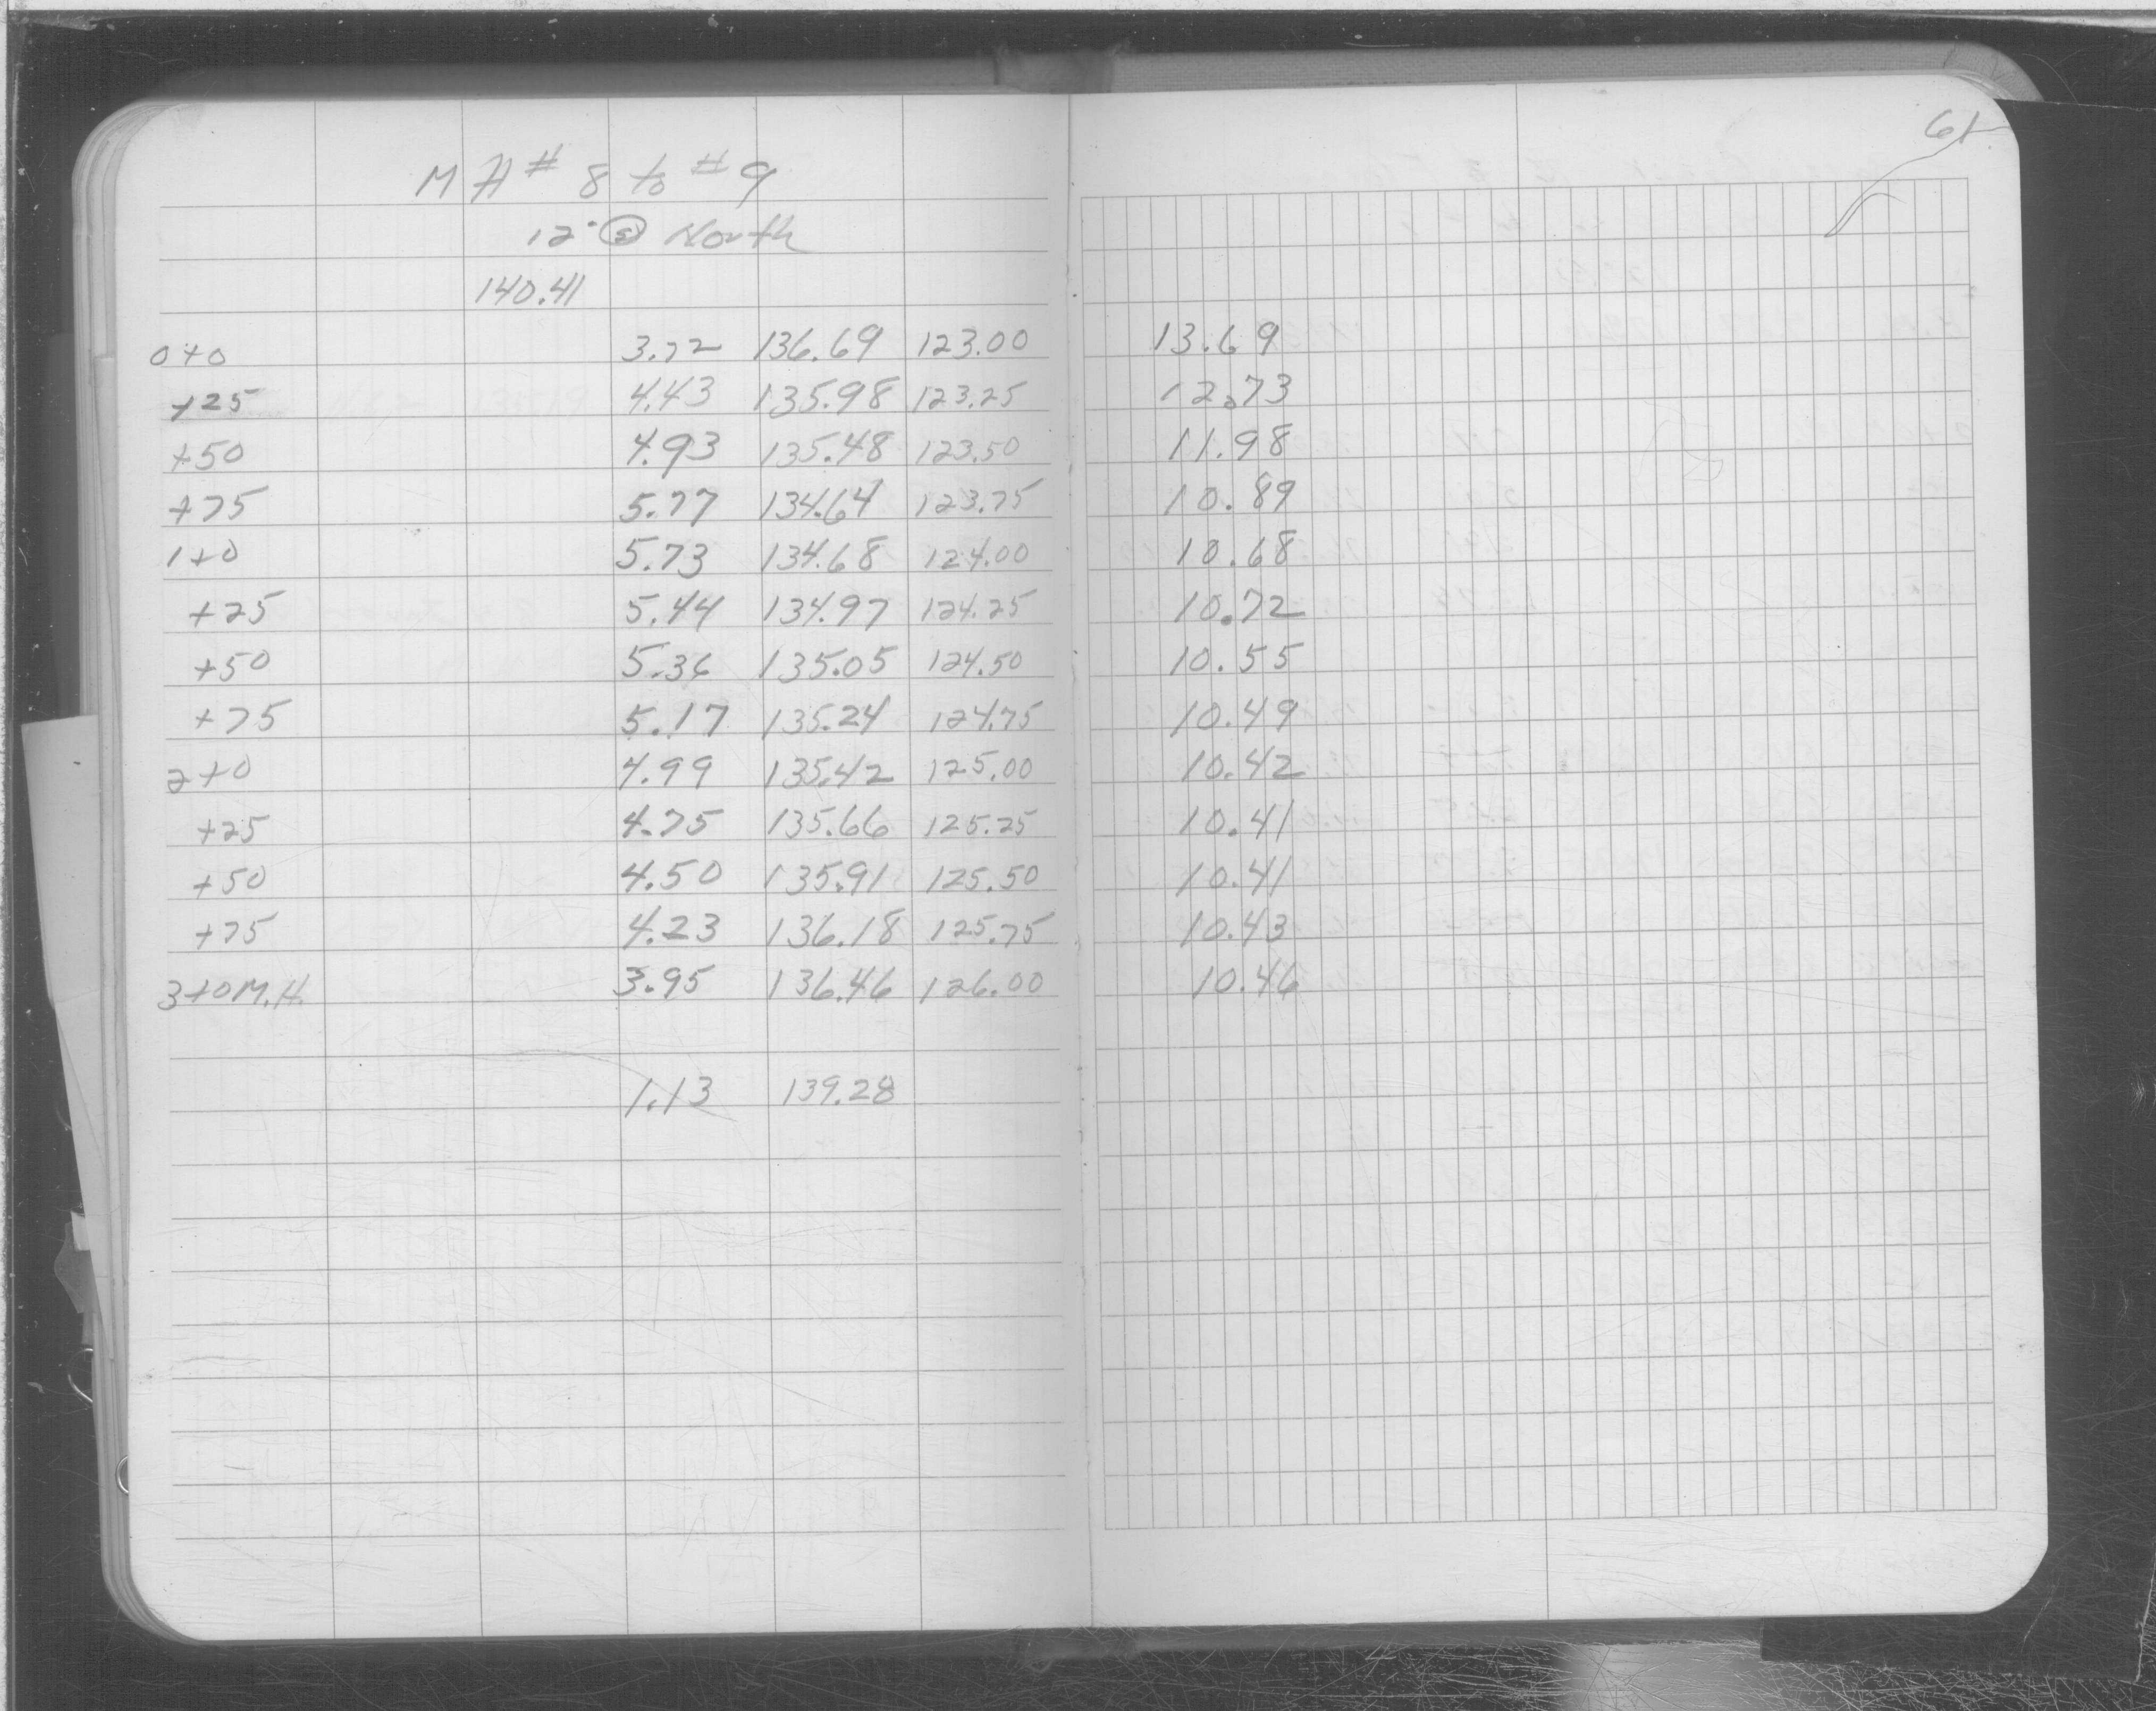 61
M H # 8 to # 9
12" Ⓢ North
140.41
0+0 3.72 136.69 123.00 13.69
+25 4.43 135.98 123.25 12.73
+50 4.93 135.48 123.50 11.98
+75 5.77 134.64 123.75 10.89
1+0 5.73 134.68 124.00 10.68
+25 5.44 134.97 124.25 10.72
+50 5.36 135.05 124.50 10.55
+75 5.17 135.24 124.75 10.49
2+0 4.99 135.42 125.00 10.42
+25 4.75 135.66 125.25 10.41
+50 4.50 135.91 125.50 10.41
+75 4.23 136.18 125.75 10.43
3+0 M.H. 3.95 136.46 126.00 10.46
1.13 139.28